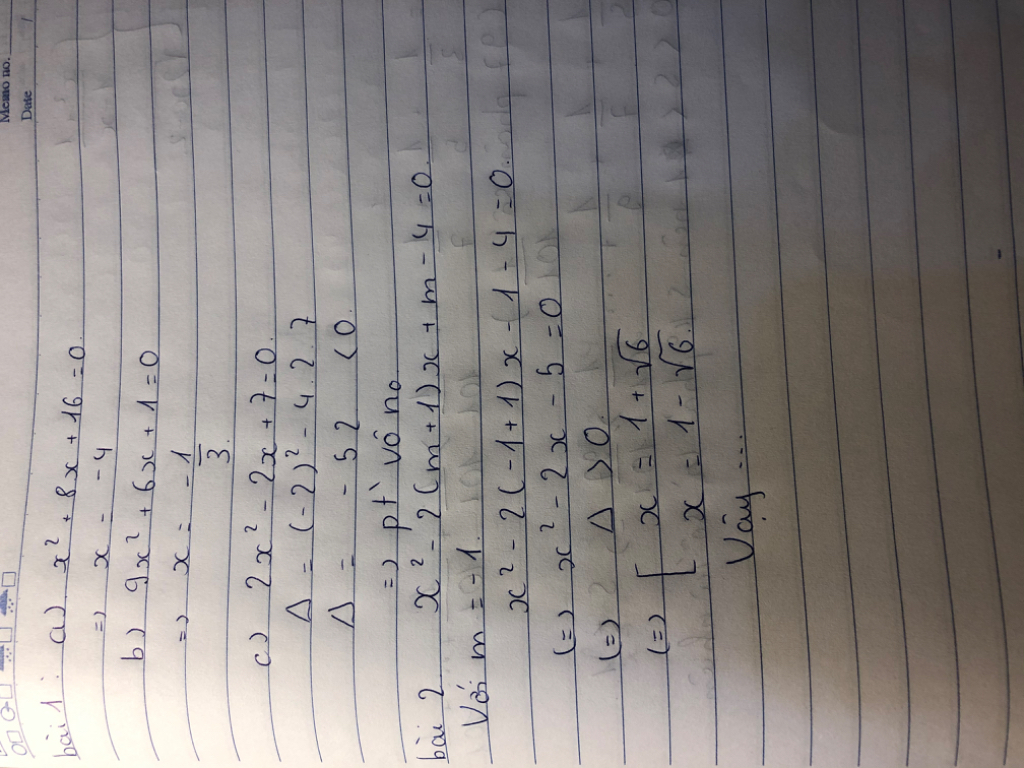 Memo no.
Date
bài 1: a) x² + 8x + 16 = 0
=) x = -4
b) 9x² + 6x + 1 = 0
=) x = -1/3.
c) 2x² - 2x + 7 = 0.
Δ = (-2)² - 4.2.7
Δ = -52 < 0.
=) pt vô no
bài 2 x² - 2(m+1)x + m - 4 = 0.
Với m = -1.
x² - 2(-1+1)x - 1 - 4 = 0.
(=) x² - 2x - 5 = 0
(=) Δ > 0.
(=) [ x = 1 + √6
x = 1 - √6.
Vậy ...